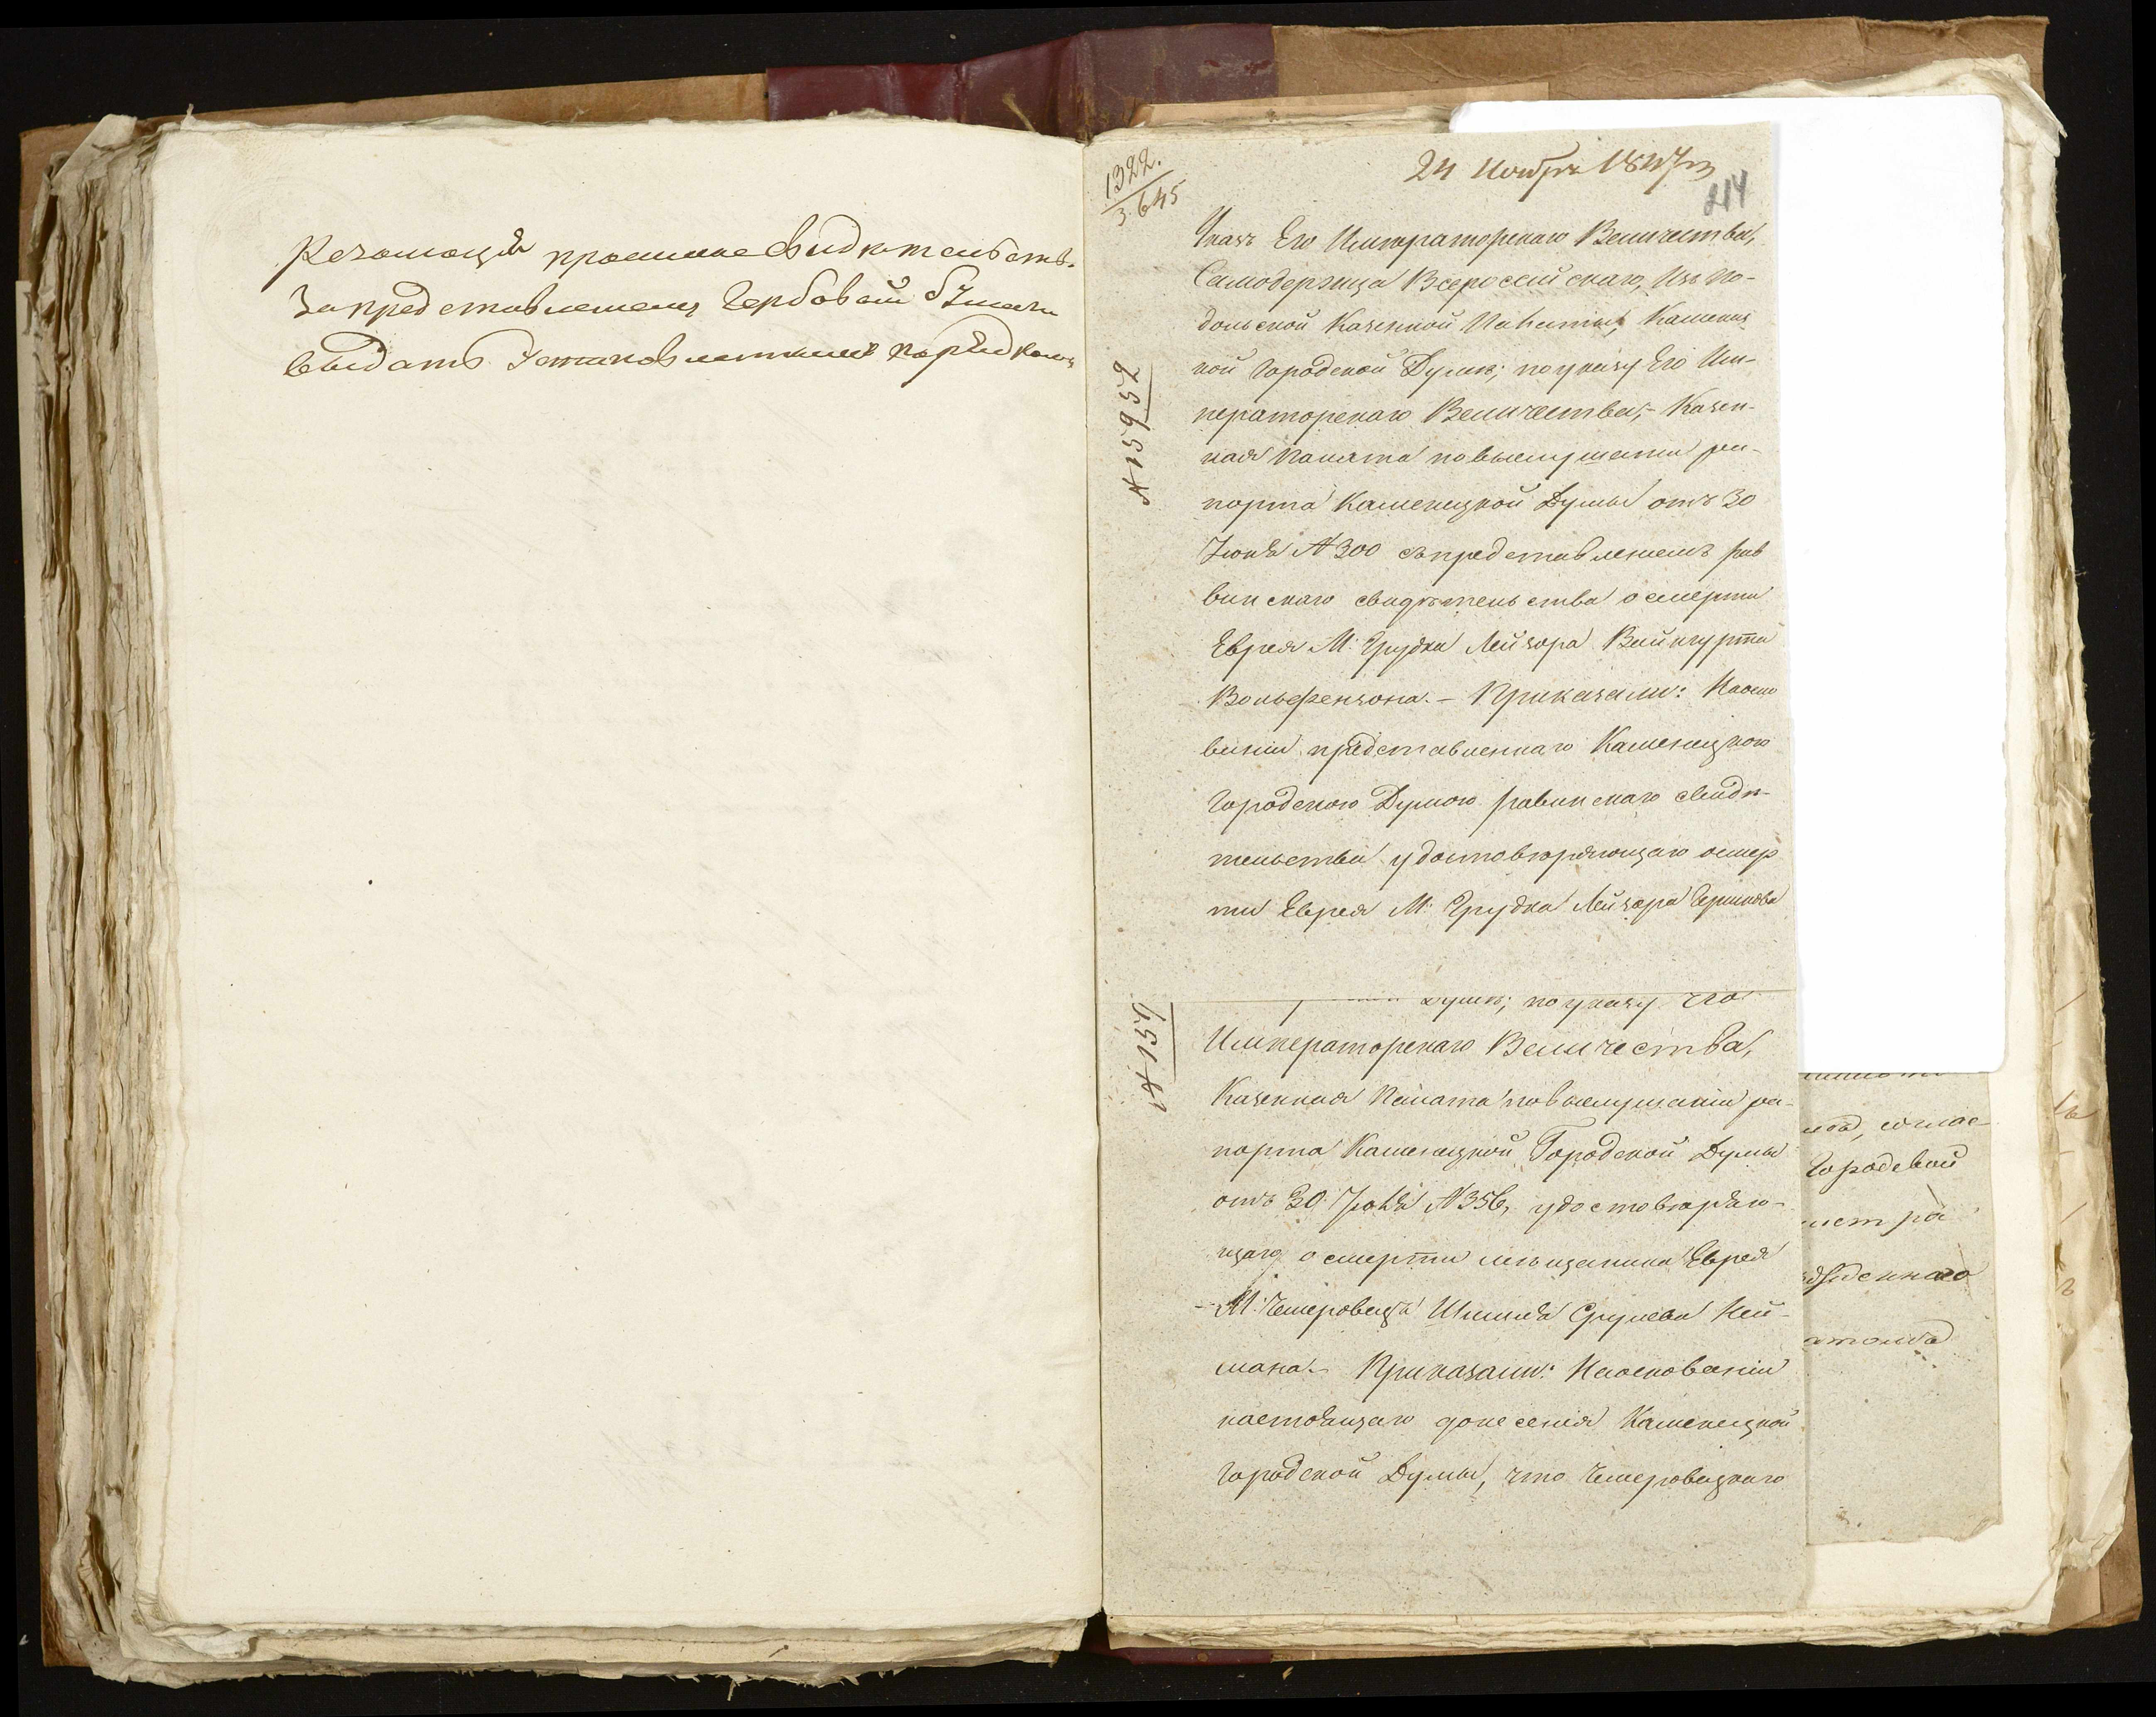 Резолюція просимое свидѣтельств.
За представленіемъ Гербовой бумаги
выдать установленнымъ порядкомъ
1322.
3.645
24 Ноября 1847 г
214
Указъ Его Императорскаго Величества,
Самодержца Всероссійскаго, Изъ По-
дольской Казенной Палаты, Каменец
кой Городской Думѣ; по указу Его Им-
ператорскаго Величества,- Казен-
ная Палата по выслушаніи ра-
порта Каменецкой Думы отъ 30
Іюня № 300 съ представленіемъ рав
винскаго свидѣтельства о смерти
Еврея М: Грудка Лейзора
Вольфензона.- Приказали: На осно
ваніи представленнаго Каменецкою
Городскою Думою равинскаго свидѣ-
тельства удостовѣряющаго о смер
ти Еврея М: Грудка Лейзора
№ 15952
Думѣ; по указу Его
Императорскаго Величества,
Казенная Палата по выслушаніи ра-
порта Каменецкой Городской Думы
отъ 30 Іюня № 356, удостовѣряю-
щаго о смерти мѣщанина Еврея
М: Чемеровецъ Шмиля Срулева Ней-
мана.- Приказали: На основаніи
настоящаго донесенія Каменецкой
Городской Думы, что Чемеровецкаго
№ 159
соглас-
Городской